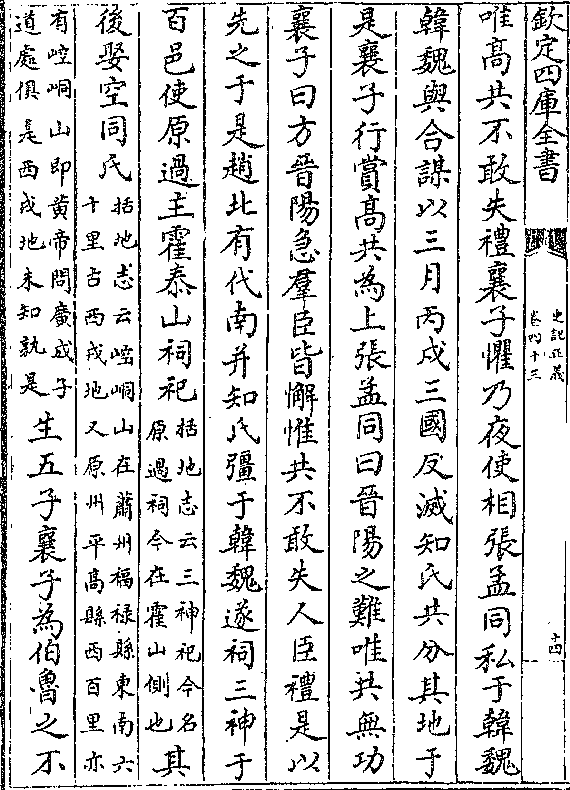 欽定四庫全書
史記正義
卷四十三
十四
唯高共不敢失禮襄子懼乃夜使相張孟同私于韓魏
韓魏與合謀以三月丙戌三國反滅知氏共分其地于
是襄子行賞高共為上張孟同曰晉陽之難唯共無功
襄子曰方晉陽急羣臣皆懈惟共不敢失人臣禮是以
先之于是趙北有代南并知氏彊于韓魏遂祠三神于
百邑使原過主霍泰山祠祀括地志云三神祠今名
原過祠今在霍山側也其
後娶空同氏括地志云崆峒山在蕭州福禄縣東南六
十里古西戎地又原州平高縣西百里亦
有崆峒山即黄帝問廣成子
道處俱是西戎地未知孰是生五子襄子為伯魯之不